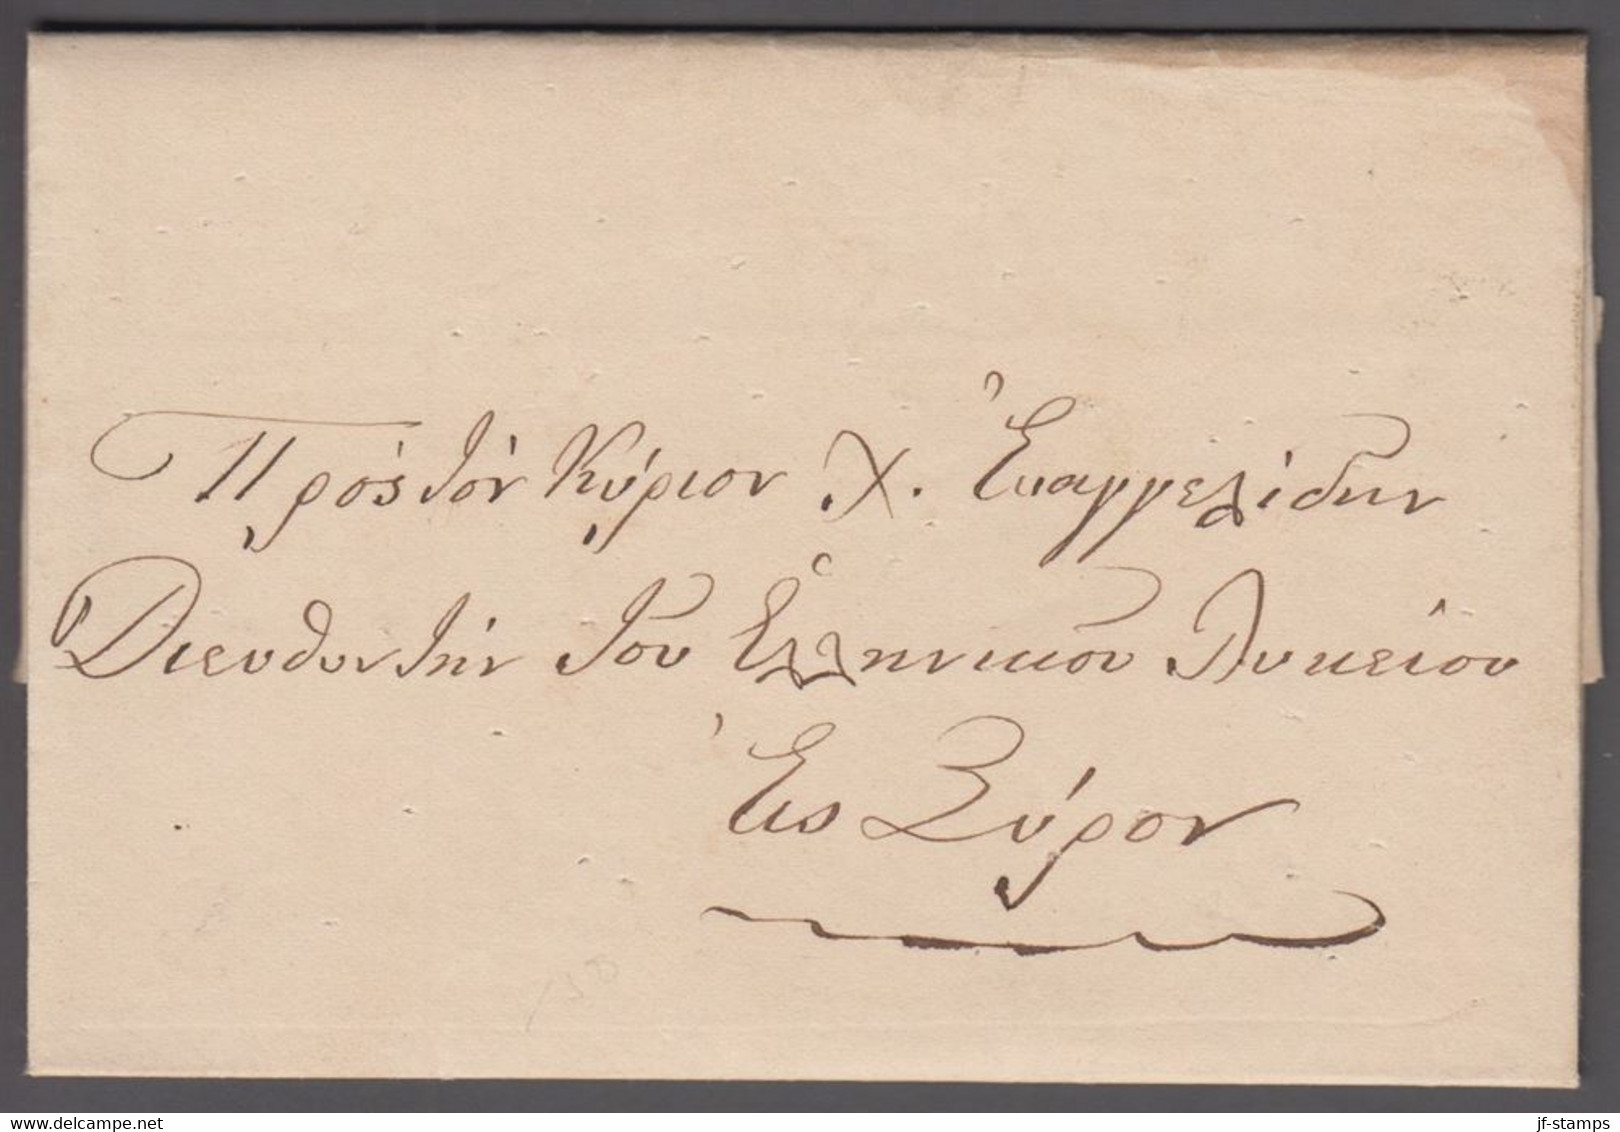 Πρὸς τὸν Κύριον Χ. Εὐαγγελίδην
Διευθυντὴν τοῦ Ἑλληνικοῦ Λυκείου
Εἰς Σύρον
150
www.delcampe.net
jf-stamps